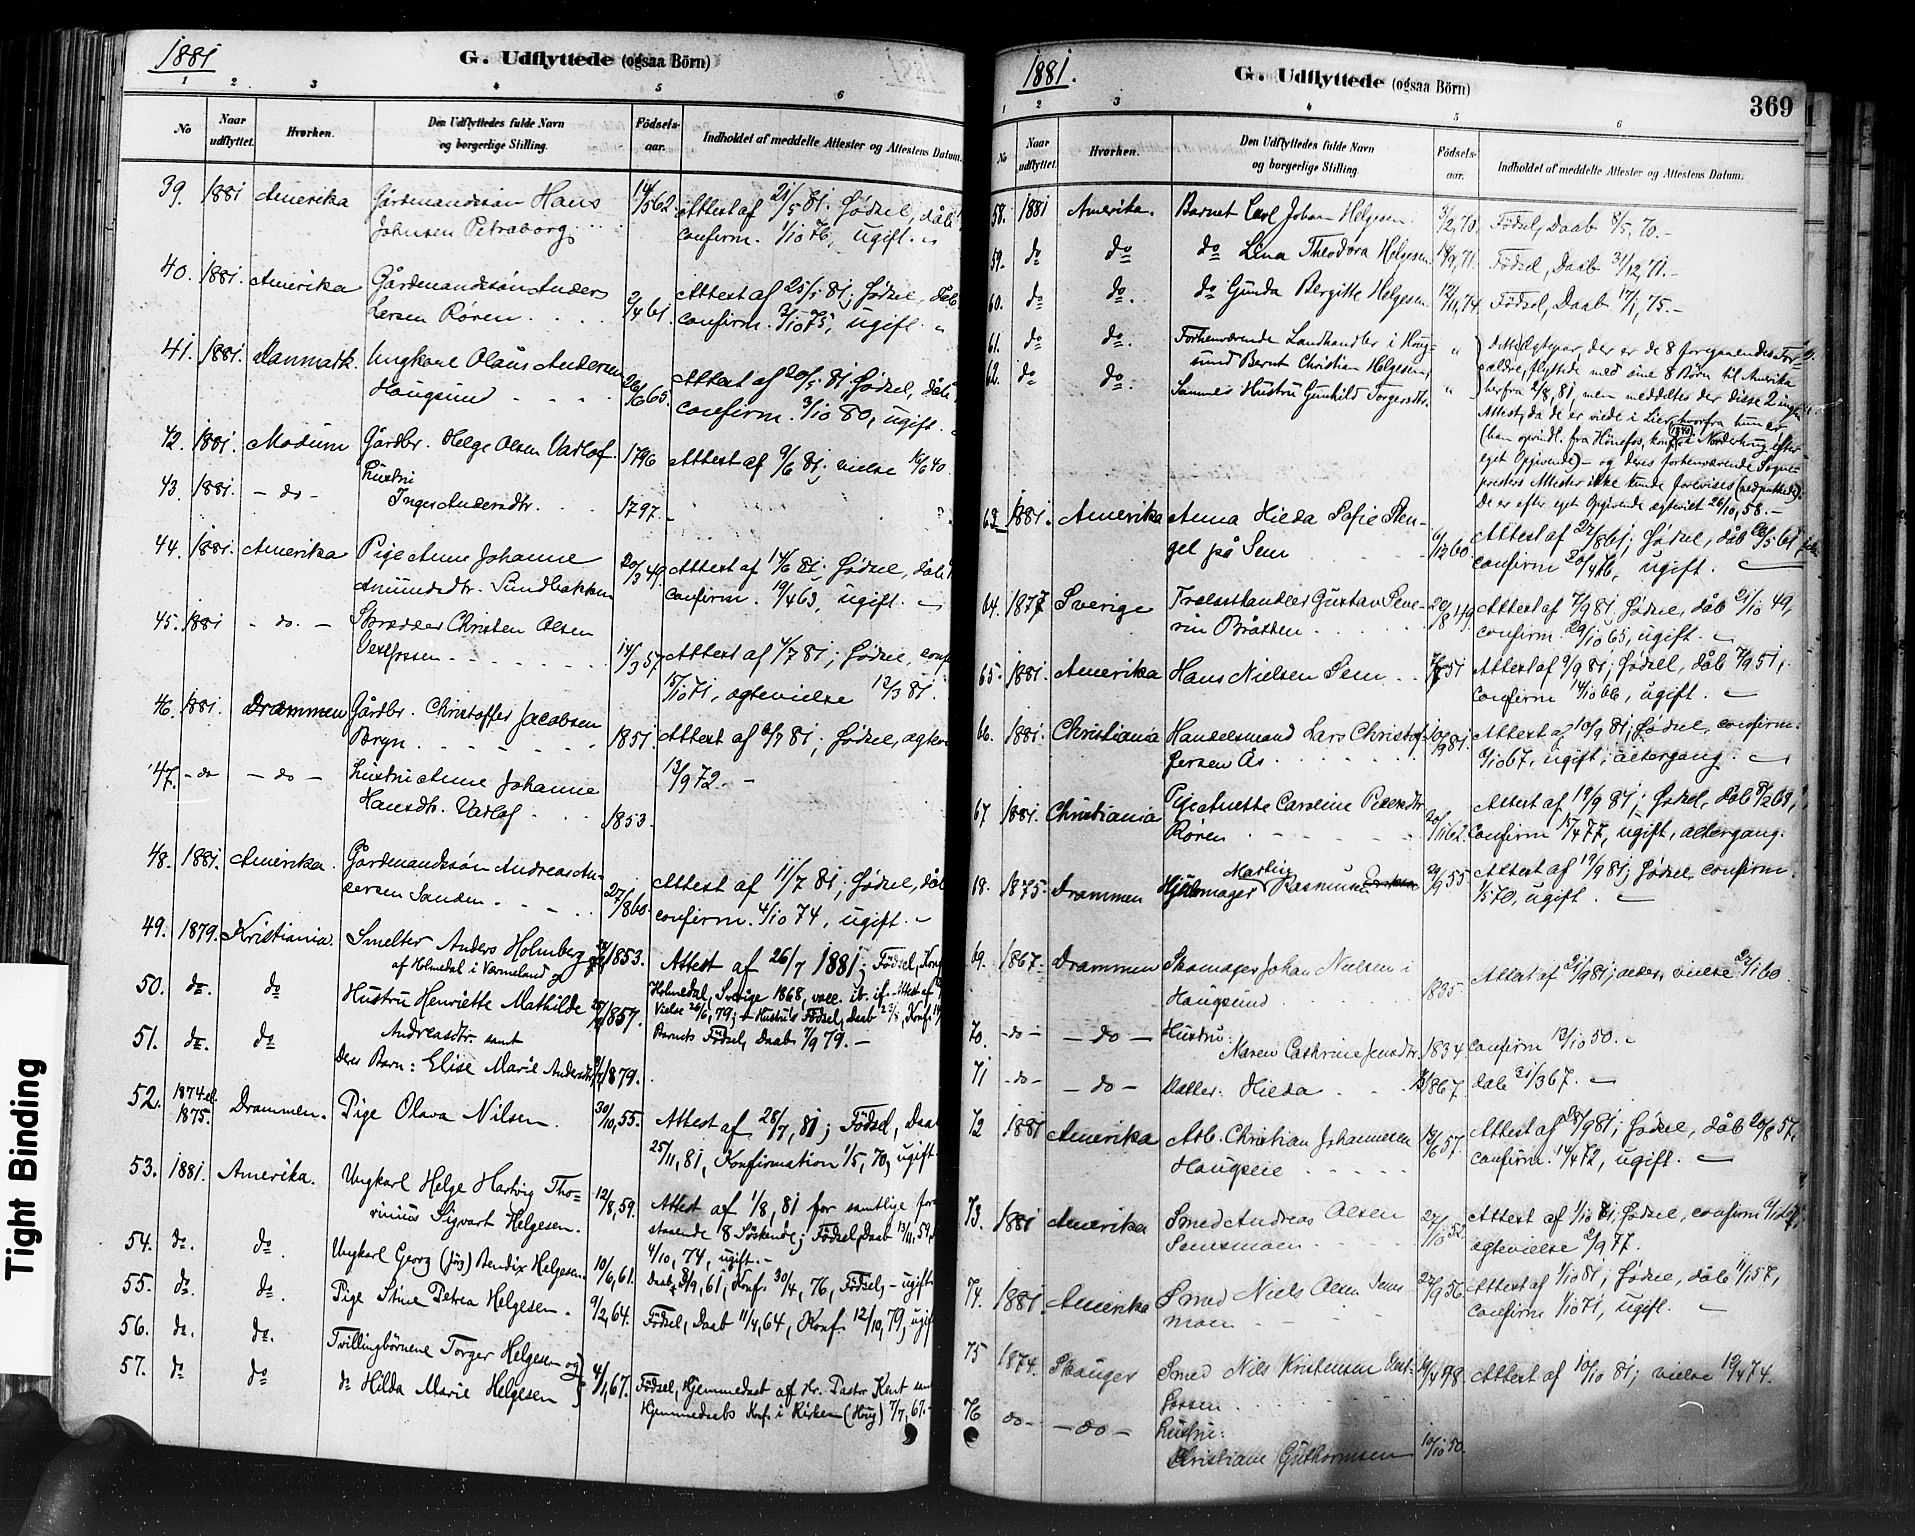 1881
G. Udflyttede (ogsaa Börn)
1 2 3 4 5 6
No
Naar udflyttet.
Hvorhen.
Den Udflyttedes fulde Navn og borgerlige Stilling.
Födsels-aar.
Indholdet af meddelte Attester og Attestens Datum.
39. 1881 Amerika Gårdmandssøn Hans 14/5 62. Attest af 21/5 81. Fødsel, dåb
Johnsen Petraborg confirm. 1/10 76, ugift.
40. 1881. Amerika Gårdmandssøn Anders 2/4 61. Attest af 25/5 81; Fødsel, dåb
Larsen Røren . . . confirm. 3/10 75, ugift.
41. 1881. Danmark. Ungkarl Olaus Andersen 26/6 65. Attest af 20/5 81. Fødsel, dåb
Hougsund . . . . confirm. 3/10 80, ugift.
42. 1881. Modum Gårdbr. Helge Olsen Varlof. 1796 Attest af 9/6 81; vielse 16/6 40.
43. 1881. - do - Hustru
Inger Andersdtr. . . 1797.
44. 1881. Amerika Pige Anne Johanne 20/3 49. Attest af 14/6 81. Fødsel, dåb
Amundsdtr. Sundbakken confirm. 19/4 63, ugift.
45. 1881 - do. - Skrædder Christen Olsen
Vestfossen . . . 14/3 57 Attest af 4/7 81; Fødsel, conf
15/10 71, ægtevielse 12/3 81.
46. 1881. Drammen Gårdbr. Christoffer Jacobsen
Bryn . . . 1851. Attest af 6/7 81; Fødsel, ægtev
47. - do - do - Hustru Anne Johanne 13/9 72. -
Hansdtr. Varlof . . . 1853.
48. 1881. Amerika Gårdmandssøn Andreas An-
dersen Sanden . . . 27/8 60. Attest af 11/7 81; Fødsel, dåb
confirm. 4/10 74, ugift. -
49. 1879. Kristiania. Smelter Anders Holmberg 1853. Attest af 26/7 1881; Födsel, Konf
af Holmedal i Värmeland og Holmedal, Sverige 1868,
50. do. do Hustru Henriette Mathilde 1857. Vielse 26/6, 79; Hustrus Födsel, Daab
51. do. do Andreasdtr. samt Barnets Födsel, Daab 7/9 79. -
Deres Barn: Elise Marie Andersdtr 1879.
52. 1874 el. 1875. Drammen. Pige Olava Nilsen. 30/10, 55. Attest af 28/7, 81; Födsel, Daab
25/11, 81, Konfirmation 1/5, 70, ugift.
53. 1881. Amerika. Ungkarl Helge Hartvig Tho= 12/8, 59. Attest af 1/8, 81 for samtlige for
rinius Sigvart Helgesen. staaende 8 Söskende; Födsel, Daab 13/11, 59,
54. do. do. Ungkarl Georg (Jörg) Bendix Helgesen. 10/6, 61. 4/10, 74, ugift. -
Daab 8/9, 61, Konf. 30/4, 76, Födsel, - ugift
55. do. do. Pige Stine Petrea Helgesen. 9/2, 64. Födsel, Daab 11/4, 64, Konf. 12/10, 79, ugift
56. do. do. Tvillingbörnene Torger Helgesen og
57. do do do Hilda Marie Helgesen } 4/1, 67. Födsel, Hjemmedaab af Hr. Pastor Kent samt
Hjemmedaabs Konf. i Kirken (Houg) 7/7, 67. -
1881.
G. Udflyttede (ogsaa Börn)
369
1 2 3 4 5 6
No
Naar udflyttet.
Hvorhen.
Den Udflyttedes fulde Navn og borgerlige Stilling.
Födsels-aar.
Indholdet af meddelte Attester og Attestens Datum.
58. 1881 Amerika. Barnet Carl Johan Helgesen 3/2, 70. Födsel, Daab 8/5, 70. -
59. do do do Lina Theodora Helgesen 14/9, 71. Födsel, Daab 31/12, 71. -
60. do do. do Gunda Bergitte Helgesen 12/11, 74. Födsel, Daab 17/1, 75. -
61. do do. Forhenværende Landhandler i Houg= " dette Ægtepar, der er de 8 foregaaendes For=
sund Bernt Christian Helgesen, ældre, flyttede med sine 8 Börn til Amerika
62. do do. Sammes Hustru Gunhild Torgersdtr. " herfra 2/8, 81, men meddeltes der disse 2 ingen
Attest, da de er viede i Lier, hvorfra hun er,
(han oprindl. fra Hönefos, konf. 1840 Norderhoug efter
eget Opgivende) - og deres forhenværende Sogne=
presters Attester ikke kunde forevises (nedpakkede).
De er efter eget Opgivende ægteviet 26/10, 58. -
63 1881. Amerika Anna Hilda Sofie Sten- Attest af 27/8 81; Fødsel, dåb 20/5 61
gel på Sem 6/12 60. confirm 20/4 76, ugift.
64. 1877 Sverige Trælasthandler Gustav Seve- 20/8 49. Attest af 7/9 81. Fødsel, dåb 21/10 49,
rin Bråtten . . . confirm. 29/10 65, ugift.
65. 1881. Amerika Hans Nielsen Sem . . 51 Attest af 9/9 81; Fødsel, dåb 7/9 51,
confirm 14/10 66, ugift.
66. 1881. Christiania Handelsmand Lars Christof- Attest af 10/9 81; Fødsel, confirm.
fersen Ås . . . 6/10 67, ugift, altergang.
67 1881. Christiania Pige Anette Caroline Pedersdtr 20/11 62. Attest af 19/9 81; Fødsel, dåb 8/2 63,
Røren confirm 15/4 77, ugift, altergang.
Martin
68. 1875. Drammen Hjulmager Rasmus 29/9 55 Attest af 19/9 81; Fødsel, confirm.
1/5 70, ugift.
69. 1867. Drammen Skomager Johan Nielsen i
Hougsund 1835. Attest af 21/9 81; vielse 22/1 60.
70. - do - - do - Hustru:
Maren Cathrine Jensdtr. 1834 confirm 13/10 50.
71 - do - - do - Datter: Hilda . . 1867. dåb 31/3 67.
72 1881 Amerika Arb. Christian Johannesen 13/6 57. Attest af 23/9 81; Fødsel, dåb 20/8 57,
Hougseie . . . confirm. 14/4 72, ugift.
73. 1881 Amerika Smed Andreas Olsen 52. Attest af 1/10 81; Fødsel, confirm
Semsmoen ægtevielse 2/9 77.
74. 1881 Amerika Smed Niels Olsen Sems- 22/9 56. Attest af 1/10 81; Fødsel, dåb 11/1 57,
moen confirm 1/10 71, ugift.
75 1874. Skouger Smed Nils Kristensen Vest- Attest af 10/10 81; vielse 19/4 74.
fossen .
76 do - - do - Hustru:
Kristiane Guthormsen 10/10 50.
Tight Binding